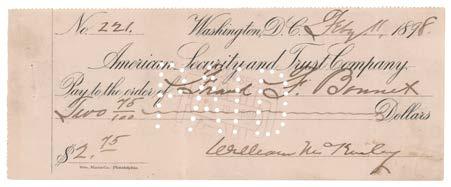 No. 221. Washington, D.C. Feby 11, 1898.
American Security and Trust Company.
Pay to the order of Frank F. Bonnet
Two 75/100 Dollars
$2.75 William McKinley
PAID